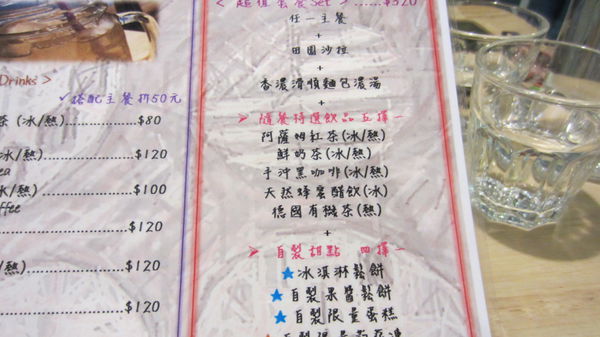 Drinks >
✓搭配主餐折50元
茶(冰/熱)..................$80
冰/熱)..................$120
ea
冰/熱)..................$100
offee
..................$120
/熱)..................$120
..................$120
< 超值套餐Set >......$320
任一主餐
+
田園沙拉
+
香濃滑順麵包濃湯
+
➢ 隨餐特選飲品五擇一
阿薩姆紅茶(冰/熱)
鮮奶茶(冰/熱)
手沖黑咖啡(冰/熱)
天然蜂蜜醋飲(冰)
德國有機茶(熱)
+
➢ 自製甜點 四擇一
★冰淇淋鬆餅
★自製果醬鬆餅
★自製限量蛋糕